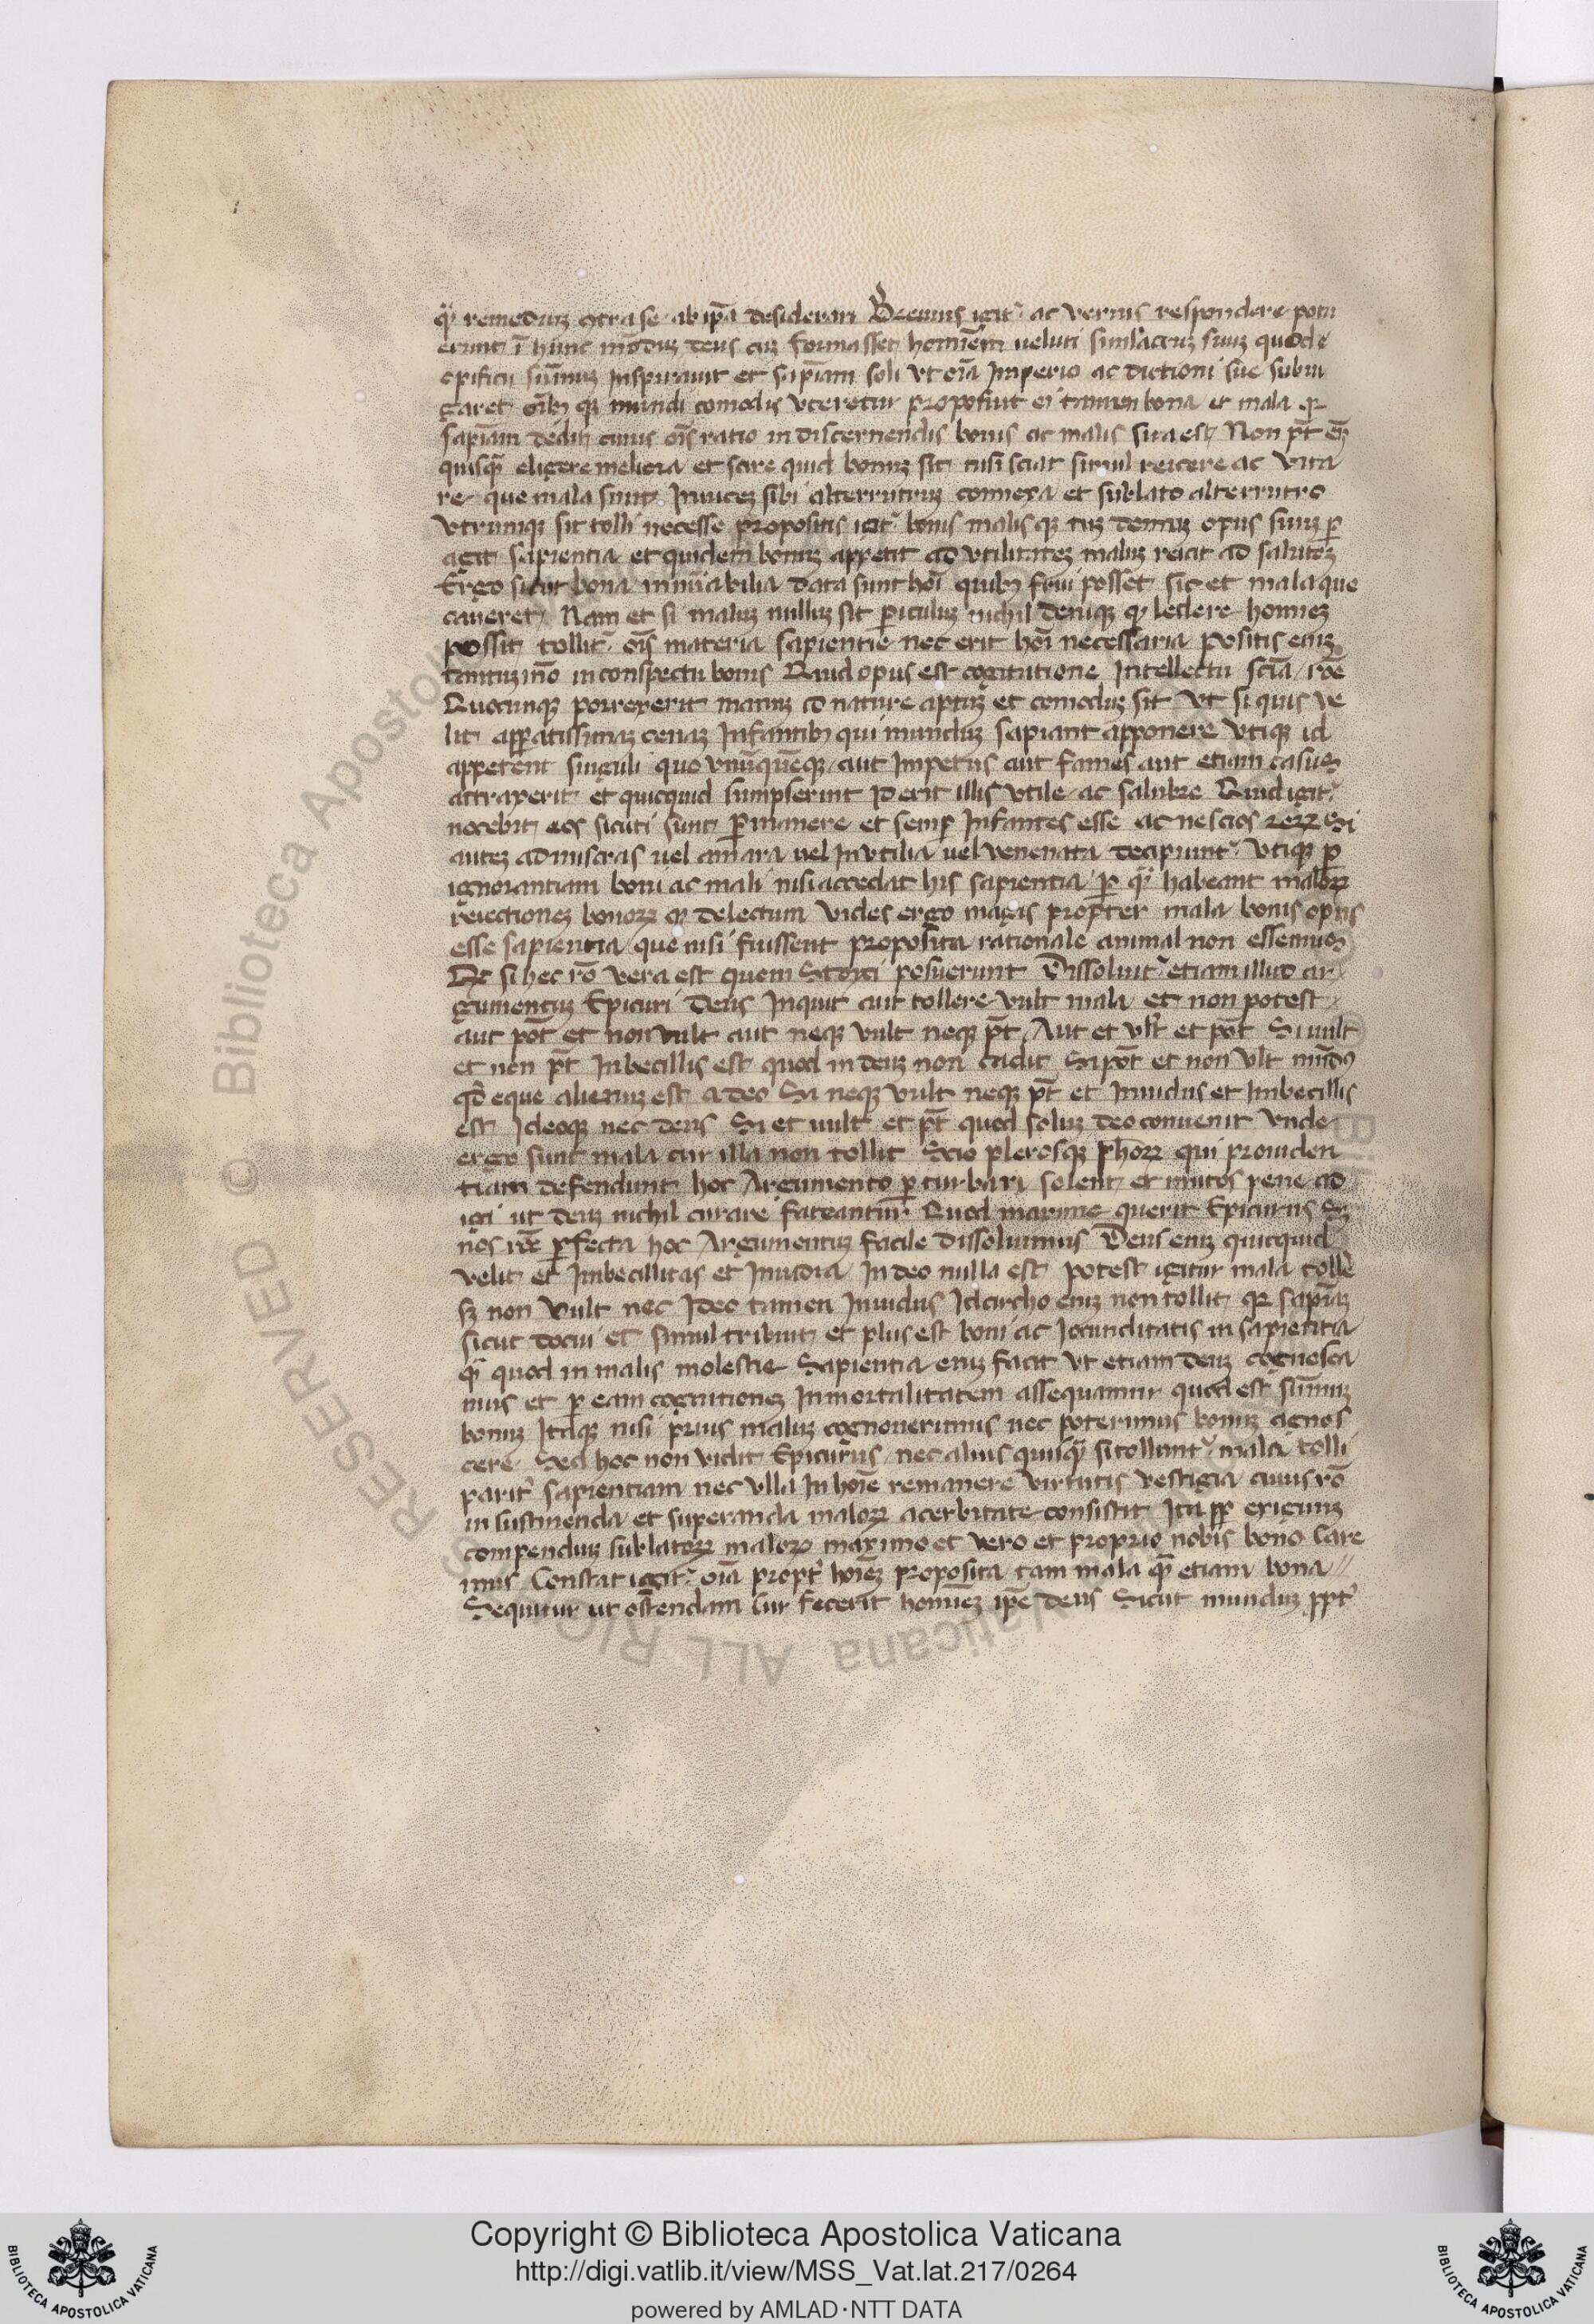 qr̃ remediuz c̃tra se ab ip̃a desiderari Breuius igit᷑ ac verius respondere potu
erunt ĩ hunc moduz deus cuz formasset hominẽm ueluti simlacruz suuz quod e
opificii sũmuz Inspirauit et sapĩam soli vt oĩa Imperio ac dictioni sue subiu
garet oĩbꝫ qꝫ mundi comodis vteretur proposuit ei tamen bona et mala qꝛ
sapĩam dedit cuius oĩs ratio in discernendis bonis ac malis sita est Non pt̃ ẽꝫ
quisqꝫ̃ eligere meliora et scire quid bonuz sit nisi sciat simul reicere ac vita
re que mala sunt Inuicez sibi alterrutruz connexa et sublato alterrutro
vtrunqꝫ sit tolli necesse propositis igit᷑ bonis malisqꝫ tuz demuz opus suuz ꝑ
agit sapientia et quidem bonuz appetit ad vtilitatez maluz reicit ad salutez
Ergo sicut bona innũabilia data sunt hoĩ quibꝫ frui posset sic et mala que
caueret Nam et si maluz nulluz sit ꝑiculuz nichil deniqꝫ qd̃ ledere hominez
possit tollit᷑ oĩs materia sapientie nec erit hoĩ necessaria positis enĩꝫ
tantuzmõ in conspectu bonis Quid opus est cogitatione Intellectu scĩa rõe
Quocunqꝫ porrexerit manuz id nature aptuz et comoduz sit vt si quis ve
lit apꝑatissimaz cenaz Infantibꝫ qui nunduz sapiant apponere vtiqꝫ id
appetent singuli quo vnũquẽqꝫ aut Impetus aut fames aut etiam casus
attraxerit et quicquid sumpserint Id erit illis vtile ac salubre Quid igit᷑
nocebit eos sicuti sunt ꝑmanere et semꝑ Infantes esse ac nescios reꝝ Si
autez admisceas uel amara uel Invtilia uel venenata decipiunt᷑ vtiqꝫ ꝑ
ignorantiam boni ac mali nisi accedat his sapientia ꝑ qr̃ habeant maloꝝ
reiectionez bonoꝝ qꝫ delectum vides ergo magis propter mala bonis opus
esse sapientia que nisi fuissent proposita rationale animal non essemus
Qd̃ si hec rõ vera est quem Stoyci posuerunt Dissoluit᷑ etiam illud ar
gumentuz Epicuri Deus Inquit aut tollere vult mala et non potest
aut pot̃ et non vult aut neqꝫ vult neqꝫ pt̃ Aut et vlt̃ et pot̃ Si uult
et non pt̃ Inbecillis est quod in deuz non cadit Si pot̃ et non vlt Inuid9
qd̃ eque alienuz est a deo Si neqꝫ vult neqꝫ pt̃ et Inuidus et Imbecillis
est Ideoqꝫ nec deus Si et uult et pt̃ quod soluz deo conuenit vnde
ergo sunt mala cur illa non tollit Scio plerosqꝫ ph̃oꝝ qui prouiden
tiam defendunt hoc Argumento ꝑturbari solent et inuitos pene ad
igi ut deuz nichil curare fateantur Quod maxime querit Epicurus Sꝫ
nos rõe ꝑfecta hoc Argumentuz facile dissoluimus Deus enꝫ quicquid
velit et Imbecillitas et Inuidia In deo nulla est potest igitur mala tolle᷑
sꝫ non vult nec Ideo tamen Inuidus Idcircho enꝫ non tollit qꝛ sapĩaz
sicut docui et̃ simul tribuit et plus est boni ac Iocunditatis in sapientia
qꝫ̃ quod in malis molestie Sapientia enꝫ facit vt etiam deuz cognosca
mus et ꝑ eam cognitionez Inmortalitatem assequamur quod est sũmuz
bonuz Itaqꝫ nisi prius maluz cognouerimus nec poterimus bonuz agnos
cere Sed hoc non vidit Epicurus nec alius quisqꝫ̃ si tollunt᷑ mala tolli
parit᷑ sapientiam nec vlla In hoĩe remanere virtutis vestigia cuius rõ
in sustinenda et superanda maloꝝ acerbitate consistit Ita ꝓp̃ exiguuz
compendiuz sublatoꝝ maloꝝ maximo et vero et proprio nobis bono care
mus Constat igit᷑ oĩa propt᷑ hoĩez proposita tam mala qꝫ̃ etiam bona //
Sequitur ut ostendam Cur fecerit hominez ip̃e deus Sicut munduz ꝓpt᷑
© Biblioteca Apostolica Vaticana ALL RIGHTS RESERVED
Copyright © Biblioteca Apostolica Vaticana
http://digi.vatlib.it/view/MSS_Vat.lat.217/0264
powered by AMLAD·NTT DATA
BIBLIOTECA APOSTOLICA VATICANA
BIBLIOTECA APOSTOLICA VATICANA